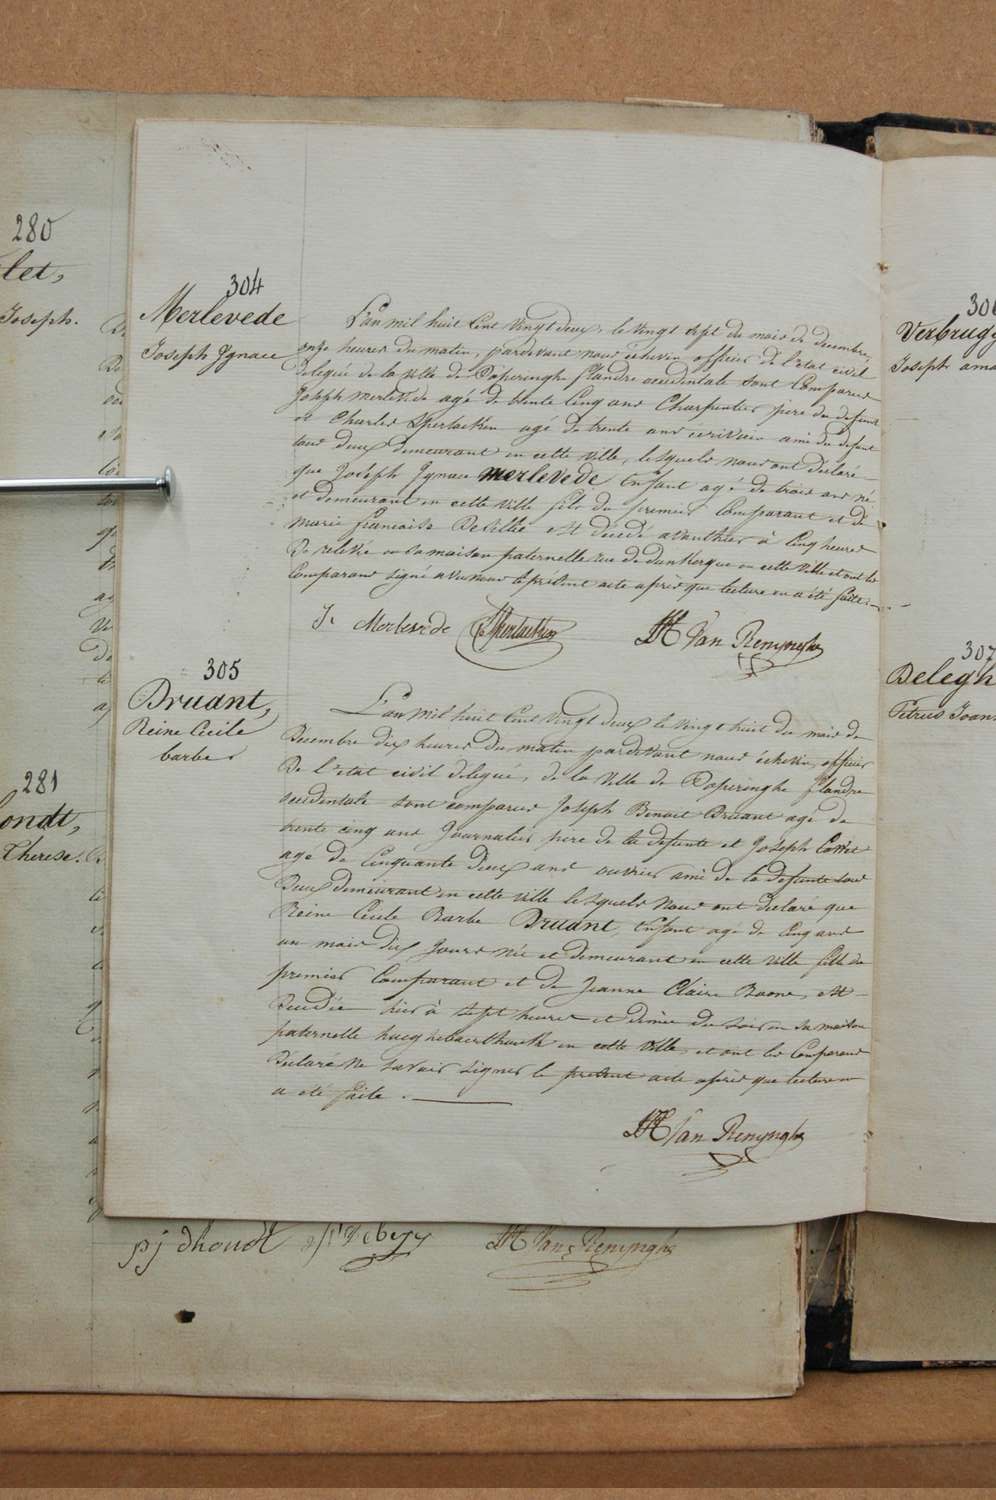 280
let,
Joseph.
281
ondt,
Therese.
304
Merlevede
Joseph Ignace
L'an mil huit Cent vingt deux, le vingt sept du mois de decembre,
onze heures du matin, pardevant nous échevin officier de l'etat civil
delegué de la ville de Poperinghe flandre occidentale sont Comparus
Joseph Merlevede agé de trente Cinq ans Charpentier pere du defunt
et Charles agé de trente ans écrivain ami du defunt
tous deux demeurant en cette ville, lesquels nous ont déclaré
que Joseph Ignace Merlevede Enfant agé de trois ans né
et demeurant en cette ville fils du premier Comparant et de
Marie françoise est décédé avanthier à Cinq heures
De relevée en sa maison paternelle rue de dunkerque en cette ville et ont les
Comparans signé avec nous le présent acte après que lecture en a été faite.
J. Merlevede
Van Renynghe
305
Bruant,
Reine Cecile
barbe
L'an mil huit Cent vingt deux le vingt huit du mois de
Decembre dix heures du matin pardevant nous échevin, officier
De l'etat civil delegué, de la Ville de Poperinghe flandre
occidentale sont comparus Joseph Benoit Bruant agé de
trente cinq ans Journalier pere de la defunte et Joseph
agé de Cinquante Deux ans ouvrier ami de la defunte tous
Deux demeurant en cette ville lesquels Nous ont déclaré que
Reine Cecile Barbe Bruant, Enfant agé de Cinq ans
un mois dix Jours née et demeurant en cette ville fille du
premier Comparant et de Jeanne Claire Baone, est
Decedée hier à sept heures et demie du soir en sa maison
paternelle en cette ville, et ont les Comparans
Declaré Ne savoir signer le présent acte après que lecture en
a été faite.
Van Renynghe
pj dhondt
Van Renynghe
306
Joseph
307
Petrus